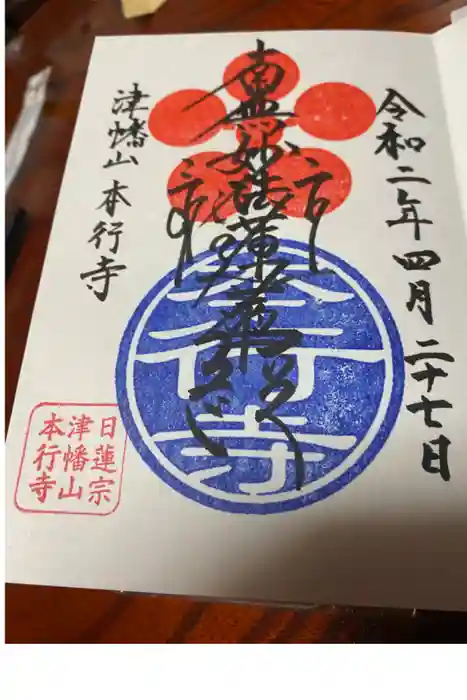 令和二年四月二十七日
南無妙法蓮華経
津幡山 本行寺
本行寺
日蓮宗
津幡山
本行寺